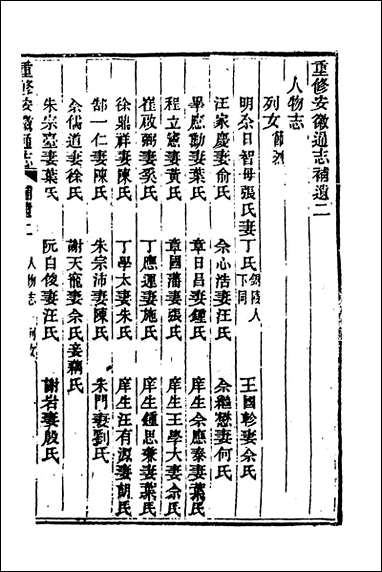 重修安徽通志補遺二
人物志
列女
明佘日智母張氏妻丁氏 銅陵人下同 王國軫妻佘氏
汪家慶妻俞氏 佘心浩妻汪氏 佘繼懋妻何氏
畢應勳妻葉氏 章日昌妻鍾氏 庠生佘應泰妻葉氏
程立憲妻黃氏 章國藩妻張氏 庠生王學大妻佘氏
崔啟弼妻奚氏 丁應運妻施氏 庠生鍾思兼妻葉氏
徐鼎祥妻陳氏 丁學太妻朱氏 庠生汪有源妻胡氏
郜一仁妻陳氏 朱宗沛妻陳氏 朱門妻劉氏
佘儒道妻徐氏 謝天龍妻佘氏妾藕氏
朱宗臺妻葉氏 阮自俊妻汪氏 謝岩妻殷氏
重修安徽通志 補遺二 人物志